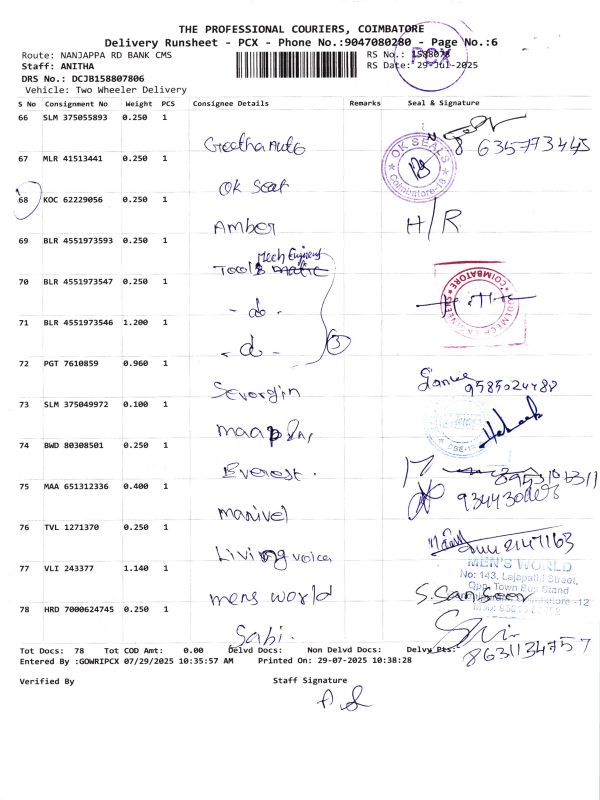 THE PROFESSIONAL COURIERS, COIMBATORE
Delivery Runsheet - PCX - Phone No.:9047080280 - Page No.:6
Route: NANJAPPA RD BANK CMS
RS No.: 1588078
Staff: ANITHA
RS Date: 29-Jul-2025
DRS No.: DCJB158807806
Vehicle: Two Wheeler Delivery
S No Consignment No Weight PCS Consignee Details Remarks Seal & Signature
66 SLM 375055893 0.250 1
Geetha Auto
8 635773445
67 MLR 41513441 0.250 1
OK Seal
OK SEALS
Coimbatore-18
68 KOC 62229056 0.250 1
Amber H/R
69 BLR 4551973593 0.250 1
Mech Engineers
Tools matic
70 BLR 4551973547 0.250 1
- do -
COIMBATORE
71 BLR 4551973546 1.200 1
- do - 3
72 PGT 7610859 0.960 1
Sevorgin
9585024788
73 SLM 375049972 0.100 1
74 BWD 80308501 0.250 1
Everest.
75 MAA 651312336 0.400 1
manivel
76 TVL 1271370 0.250 1
Living voice
77 VLI 243377 1.140 1
mens world
MEN'S WORLD
No: 143, Lajapathi Street,
Opp. Town Bus Stand
78 HRD 7000624745 0.250 1
Sabi.
8631134757
Tot Docs: 78 Tot COD Amt: 0.00 Delvd Docs: Non Delvd Docs: Delvy Pts:
Entered By :GOWRIPCX 07/29/2025 10:35:57 AM Printed On: 29-07-2025 10:38:28
Verified By Staff Signature